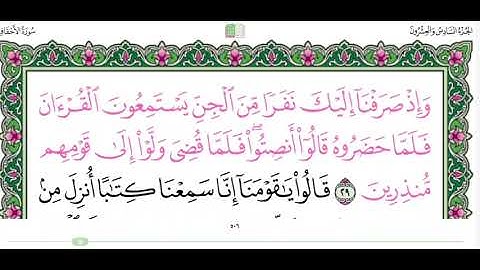 الجزء السادس والعشرون
سورة الأحقاف
وَإِذْ صَرَفْنَآ إِلَيْكَ نَفَرًا مِّنَ ٱلْجِنِّ يَسْتَمِعُونَ ٱلْقُرْءَانَ
فَلَمَّا حَضَرُوهُ قَالُوٓا۟ أَنصِتُوا۟ ۖ فَلَمَّا قُضِىَ وَلَّوْا۟ إِلَىٰ قَوْمِهِم
مُّنذِرِينَ ٢٩ قَالُوا۟ يَٰقَوْمَنَآ إِنَّا سَمِعْنَا كِتَٰبًا أُنزِلَ مِنۢ
٥٠٦